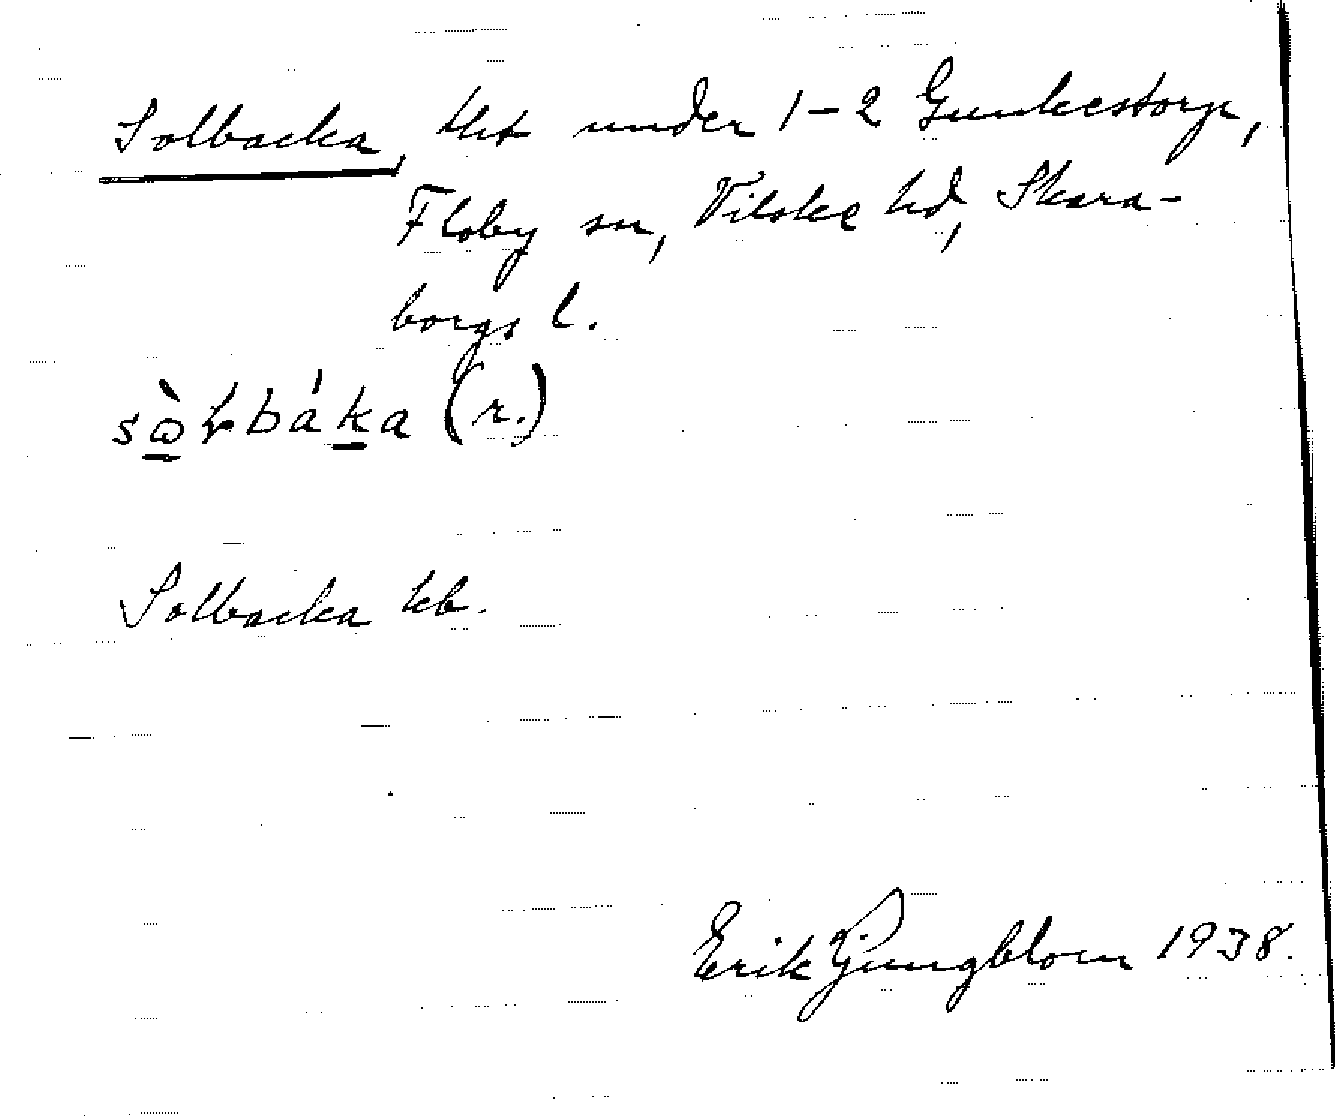 Solbacka, tht under 1-2 Gunkestorp,
Floby sn, Vilske hd, Skara-
borgs l.
(r.)
Solbacka kb.
Erik Ljungblom 1938.